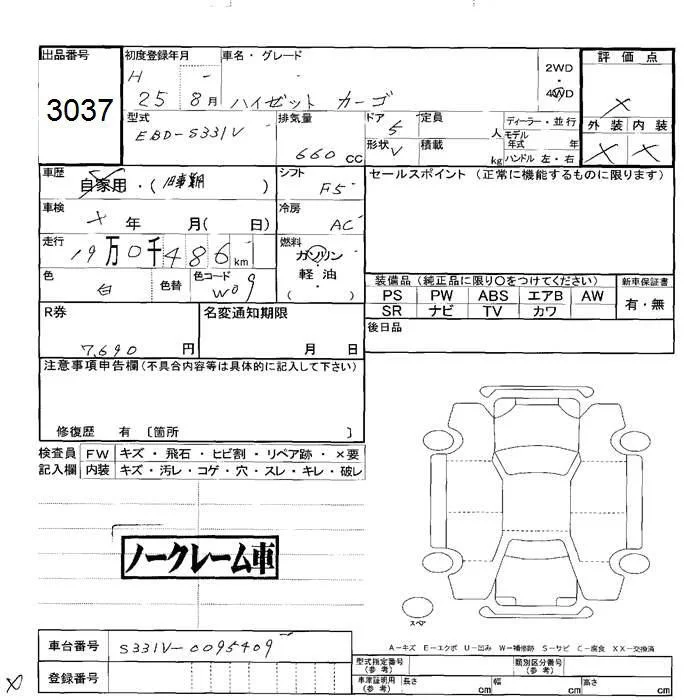 出品番号
3037
初度登録年月
H
25 8月
車名・グレード
ハイゼット カーゴ
2WD
・
4WD
評価点
×
外装 内装
× ×
型式
EBD-S331V
排気量
660 CC
ドア 5
形状 V
定員 人
積載 kg
ディーラー・並行
モデル年式 年
ハンドル 左・右
車歴
自家用・( )
シフト
F5
セールスポイント (正常に機能するものに限ります)
車検
× 年 月( 日)
冷房
AC
走行
19万0千486km
燃料
ガソリン
・
軽油
( )
色
白
色替
色コード
W09
装備品(純正品に限り○をつけてください)
PS PW ABS エアB AW
SR ナビ TV カワ
新車保証書
有・無
R券
7,690 円
名変通知期限
月 日
後日品
注意事項申告欄(不具合内容等は具体的に記入して下さい)
修復歴 有 〔箇所 〕
検査員記入欄
FW キズ・飛石・ヒビ割・リペア跡・×要
内装 キズ・汚レ・コゲ・穴・スレ・キレ・破レ
ノークレーム車
スペア
A-キズ E-エクボ U-凹み W-補修跡 S-サビ C-腐食 XX-交換済
車台番号
S331V-0095409
登録番号
型式指定番号(参考)
類別区分番号(参考)
車庫証明用(参考)
長さ cm 幅 cm 高さ cm